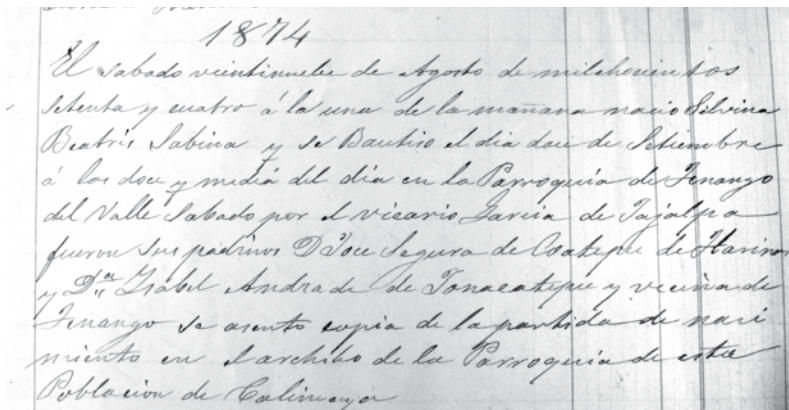 1874
El sabado veintinuebe de Agosto de milchosientos
setenta y cuatro á la una de la mañana nacio Silvina
Beatris Sabina y se Bautiso el dia doce de Setiembre
á las doce y media del dia en la Parroquia de Tenango
del Valle Sabado por el vicario Garcia de Tajalpa
fueron sus padrinos D Jose Segura de Coatepec de Harinas
y Da Ysabel Andrade de Tonacatepec y vecina de
Tenango se asento copia de la partida de naci
miento en el archibo de la Parroquia de esta
Poblacion de Calimaya